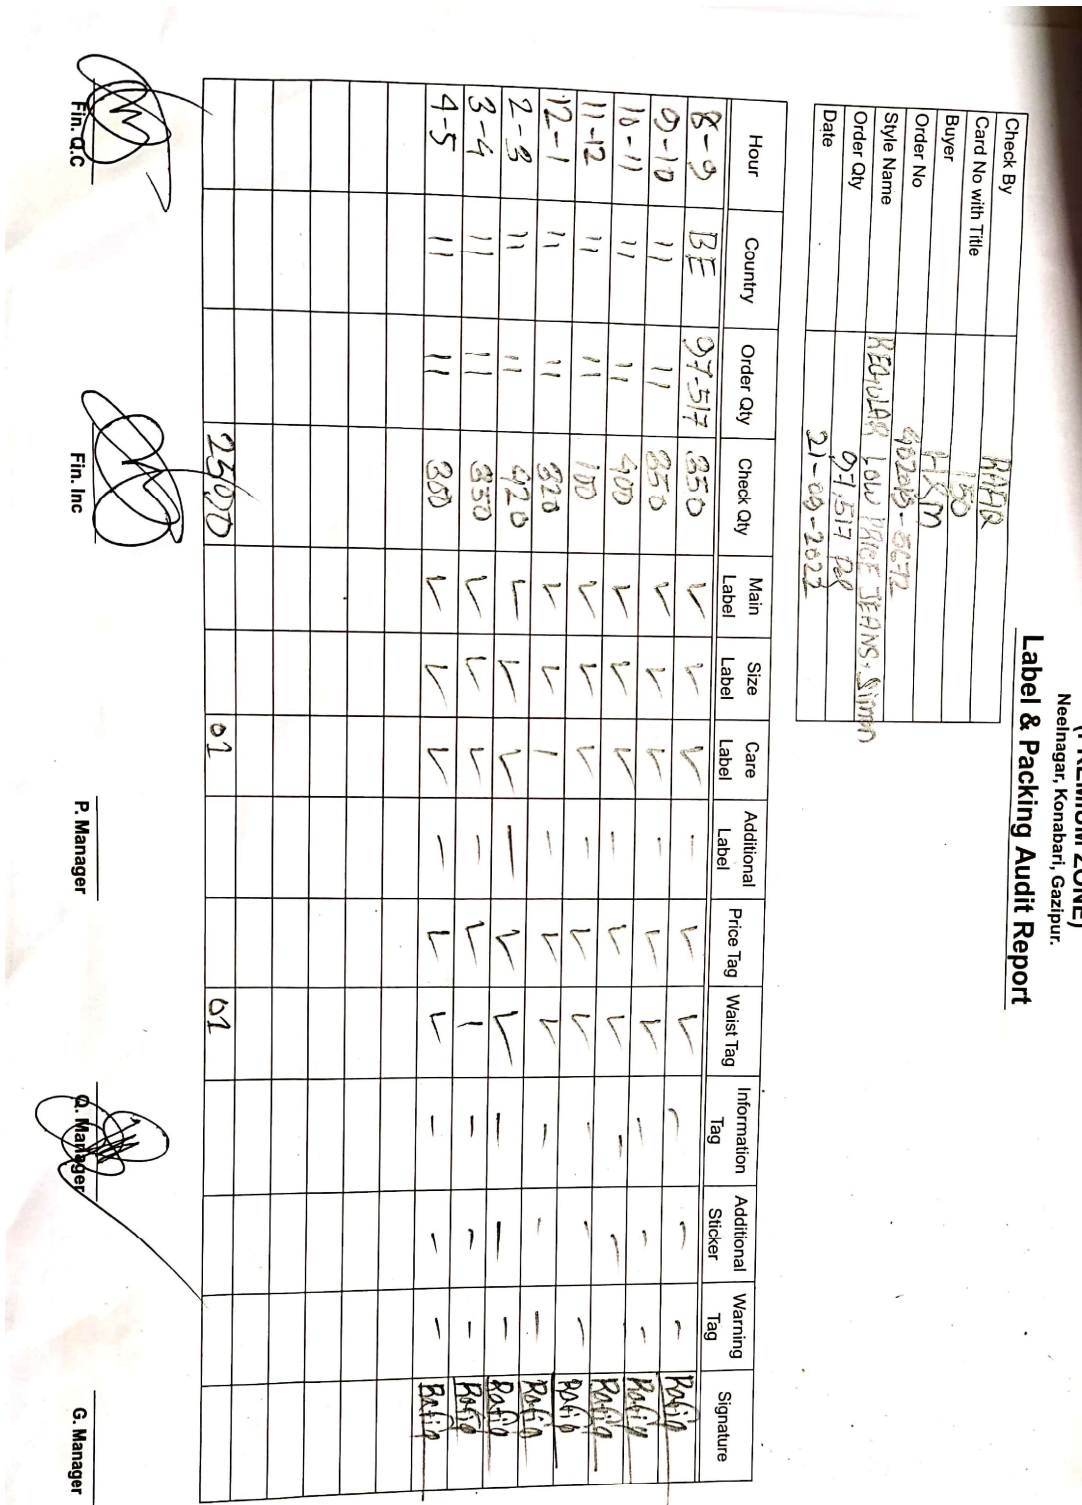 (PREMIUM ZONE)
Neelnagar, Konabari, Gazipur.
Label & Packing Audit Report
Check By RAFIQ
Card No with Title 150
Buyer H&M
Order No
Style Name REGULAR LOW PRICE JEANS, Simon
Order Qty 97,517 Pcs
Date 21-09-2022
Hour Country Order Qty Check Qty Main Label Size Label Care Label Additional Label Price Tag Waist Tag Information Tag Additional Sticker Warning Tag Signature
8-9 BE 97-517 350 ✓ ✓ ✓ - ✓ ✓ - - - Rafiq
9-10 11 11 350 ✓ ✓ ✓ - ✓ ✓ - - - Rafiq
10-11 11 11 400 ✓ ✓ ✓ - ✓ ✓ - - Rafiq
11-12 11 11 100 ✓ ✓ ✓ - ✓ ✓ - - - Rafiq
12-1 11 11 320 ✓ ✓ 1 - ✓ ✓ - - - Rafiq
2-3 11 11 420 ✓ ✓ ✓ - ✓ ✓ - - - Rafiq
3-4 11 11 350 ✓ ✓ ✓ - ✓ 1 - - - Rafiq
4-5 11 11 300 ✓ ✓ ✓ - ✓ ✓ - - - Rafiq
01 01
Fin. Q.C Fin. Inc P. Manager Q. Manager G. Manager